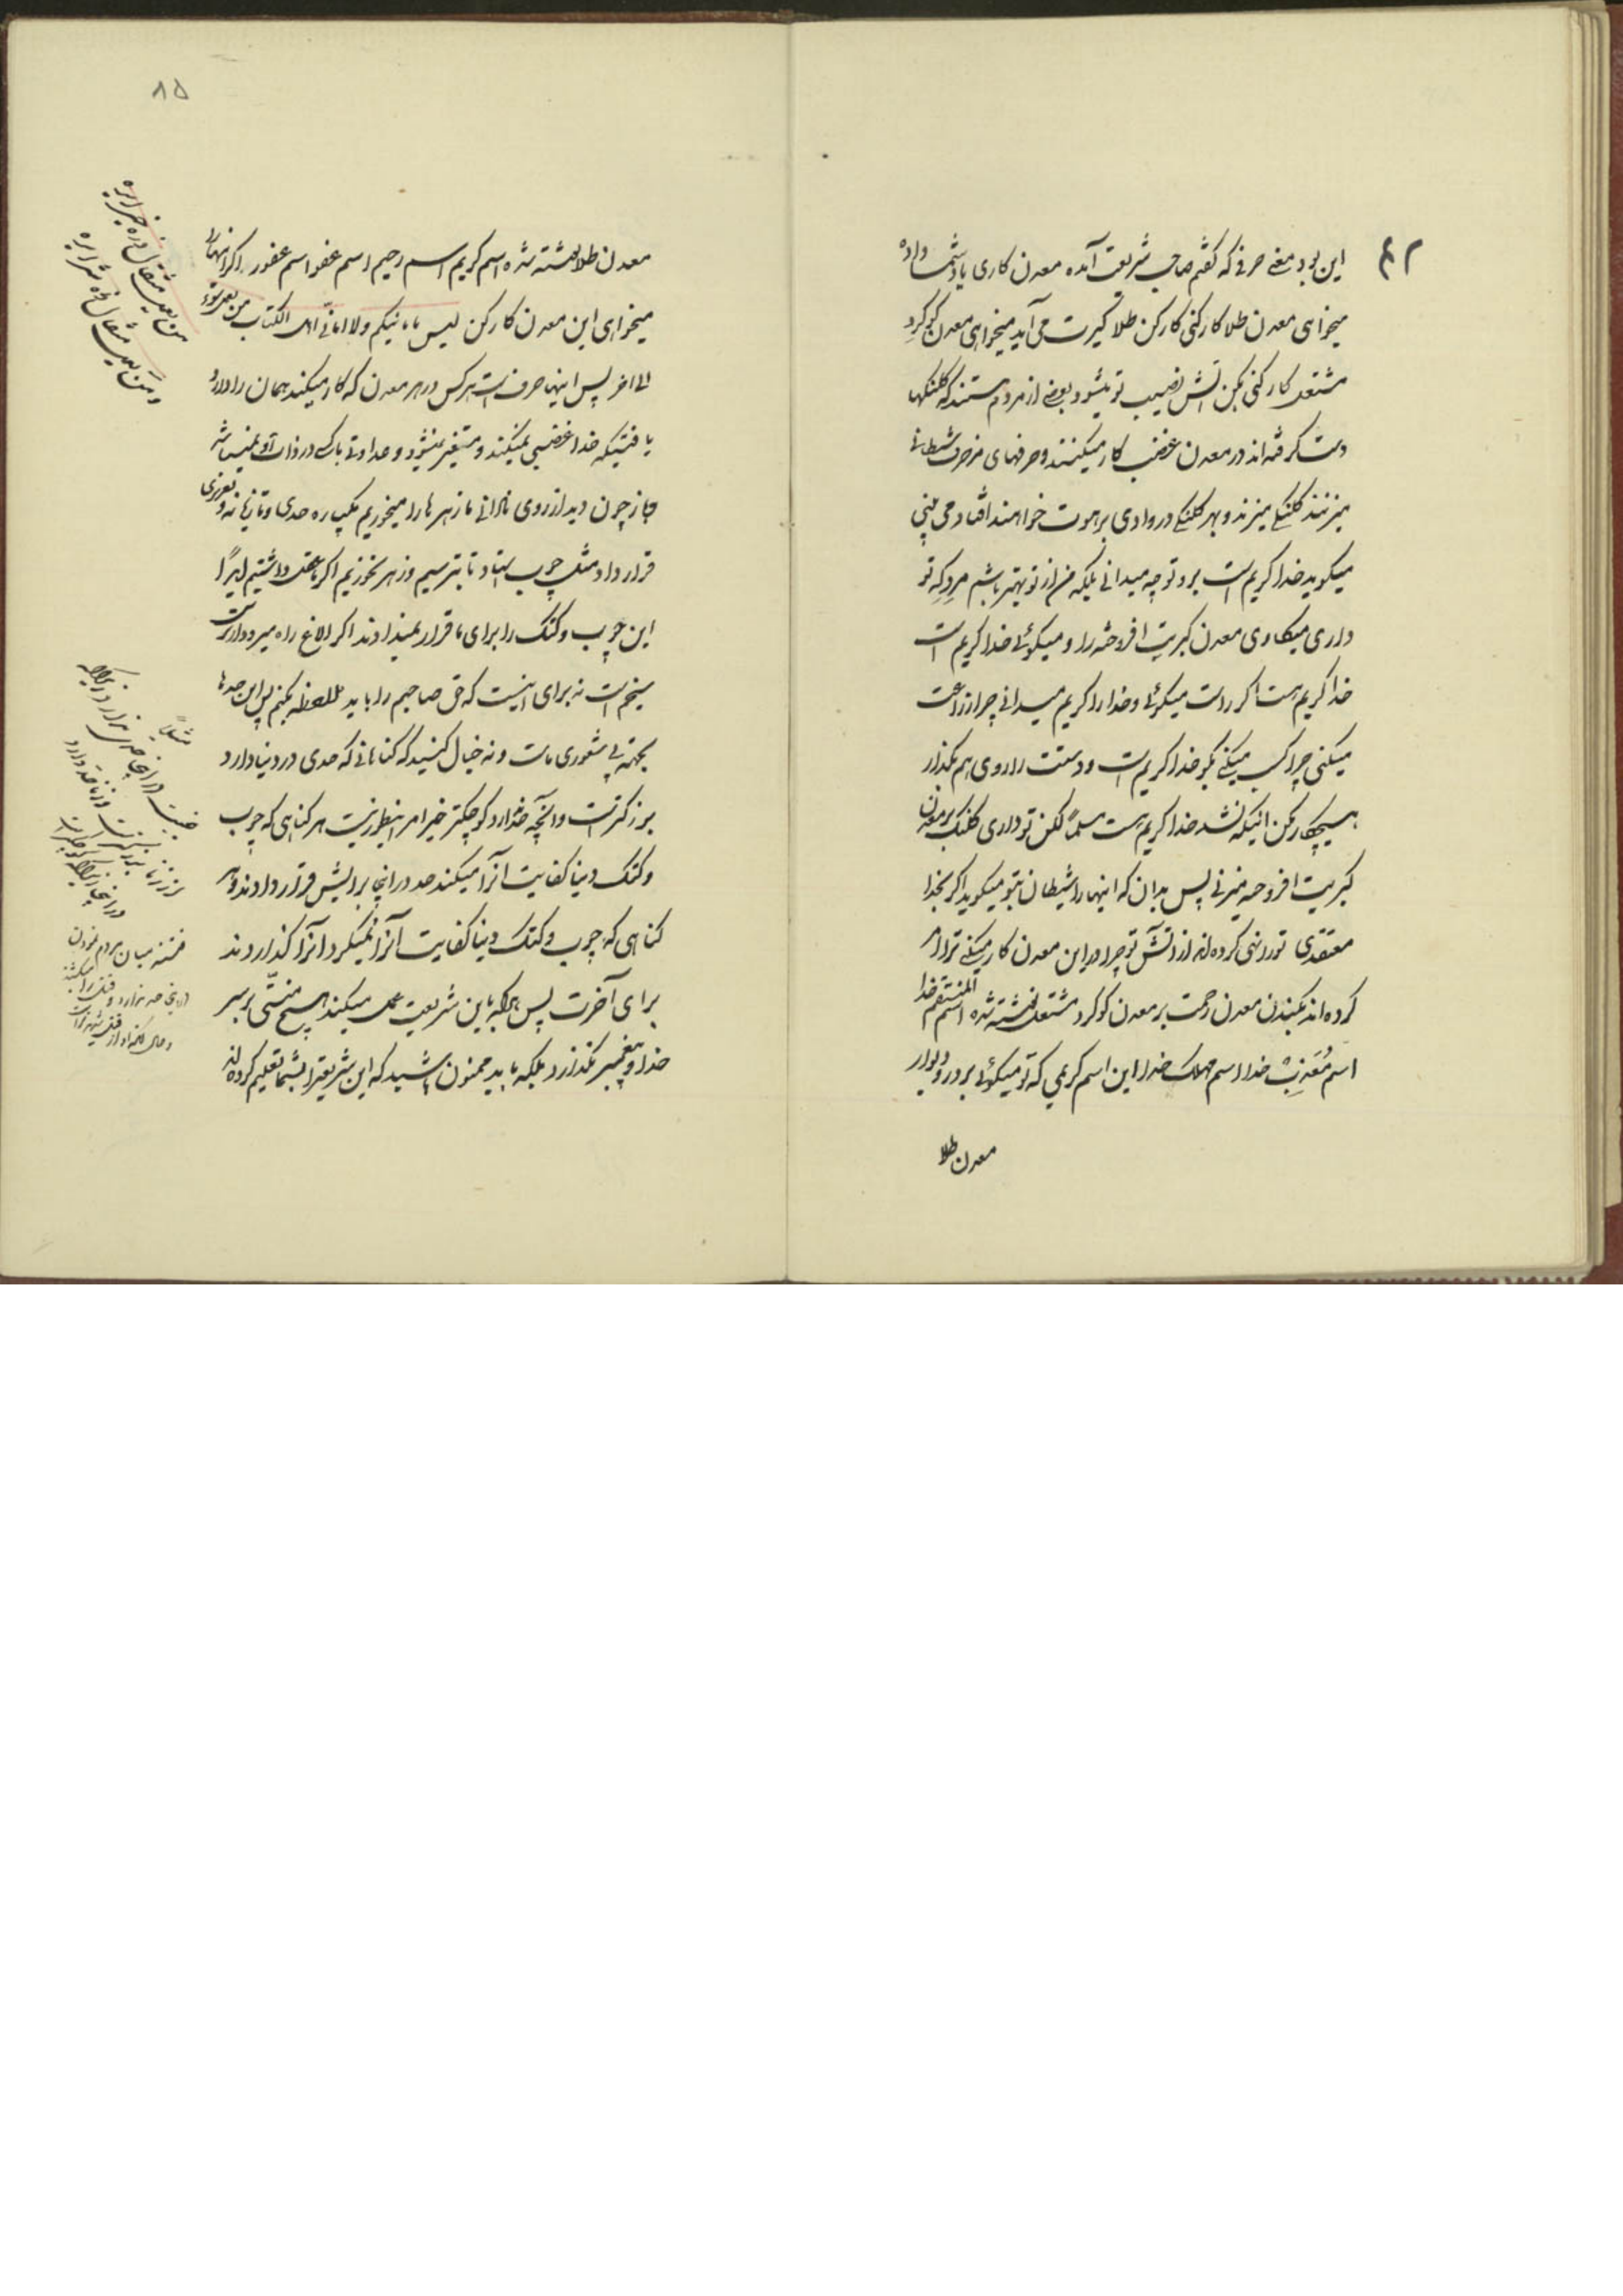 ۴۲
این بود معنی حرفی که گفتم صاحب شریعت آمده معدن کاری یاد شما داده
میخواهی معدن طلا کار کنی کار کن طلا گیرت می آید میخواهی معدن گوگرد
مشتعل کار کنی بکن آتش نصیب تو میشود بعضی از مردم هستند که کلنکها
دست گرفته اند در معدن غضب کار میکنند و حرفهای مزخرف شیطانی
میزنند کلنکی میزند و بهر کلنکی در وادی برهوت خواهند افتاد می بینی
میگوید خدا کریم است برو تو چه میدانی بلکه من از تو بهتر باشم مردکه تو
داری میکاوی معدن کبریت افروخته را و میگوئی خدا کریم است
خدا کریم هست اگر راست میگوئی و خدا را کریم میدانی چرا زراعت
میکنی چرا کسب میکنی بگو خدا کریم است و دستت را روی هم بگذار
هیچکار مکن اینکه نشد خدا کریم هست مسلماً لکن تو داری کلنک بر معدن
کبریت افروخته میزنی پس بدان که اینها را شیطان بتو میگوید اگر بخدا
معتقدی تو را نهی کرده اند از آتش تو چرا در این معدن کار میکنی ترا امر
کرده اند بکندن معدن رحمت بر معدن گوگرد مشتعل نوشته شده اسم المنتقم خدا
اسم مُعَذِّب خدا اسم مهلک خدا این اسم کریمی که تو میگوئی بر در و دیوار
معدن طلا
۸۵
معدن طلا نوشته شده اسم کریم اسم رحیم اسم عفو اسم غفور اگر اینها را
میخواهی این معدن کار کن لیس بامانیکم ولا امانی اهل الکتاب من یعمل سوءً
الی اخر پس اینها حرف است هر کس در هر معدن که کار میکند همان را دارد
یافتیکه خدا غضبی نمیکند و متغیر نمیشود و عداوتی با کسی در ذات او نمیباشد
و باز چون دید از روی نادانی ما زهرها را میخوریم یکپاره حدی و تازیانه و تعزیری
قرار داد مثل چوب استاد تا بترسیم و زهر نخوریم اگر ما عقل داشتیم ابداً
این چوب و کتک را برای ما قرار نمیدادند اگر الاغ راه میرود
سیخم است نه برای اینست که حق صاحبم را باید ملاحظه بکنم پس این حدها
بجهة بی شعوری ماست و نه خیال کنید که گناهانی که حدی در دنیا دارد
بزرگتر است و آنچه حد ندارد کوچکتر خیر امر اینطور نیست هر گناهی که چوب
و کتک دنیا کفایت آنرا میکند حد در اینجا برایش قرار دادند و هر
گناهی که چوب و کتک دنیا کفایت آنرا نمیکرد آنرا گذاردند
برای آخرت پس هر که باین شریعت عمل میکند هیچ منّتی بر سر
خدا و پیغمبر نگذارد بلکه باید ممنون باشید که این شریعترا بشما تعلیم کرده اند
من یعمل مثقال ذرة خیراً یره
و من یعمل مثقال ذرة شراً یره
مثلاً
فتنه میان مردم نمودن